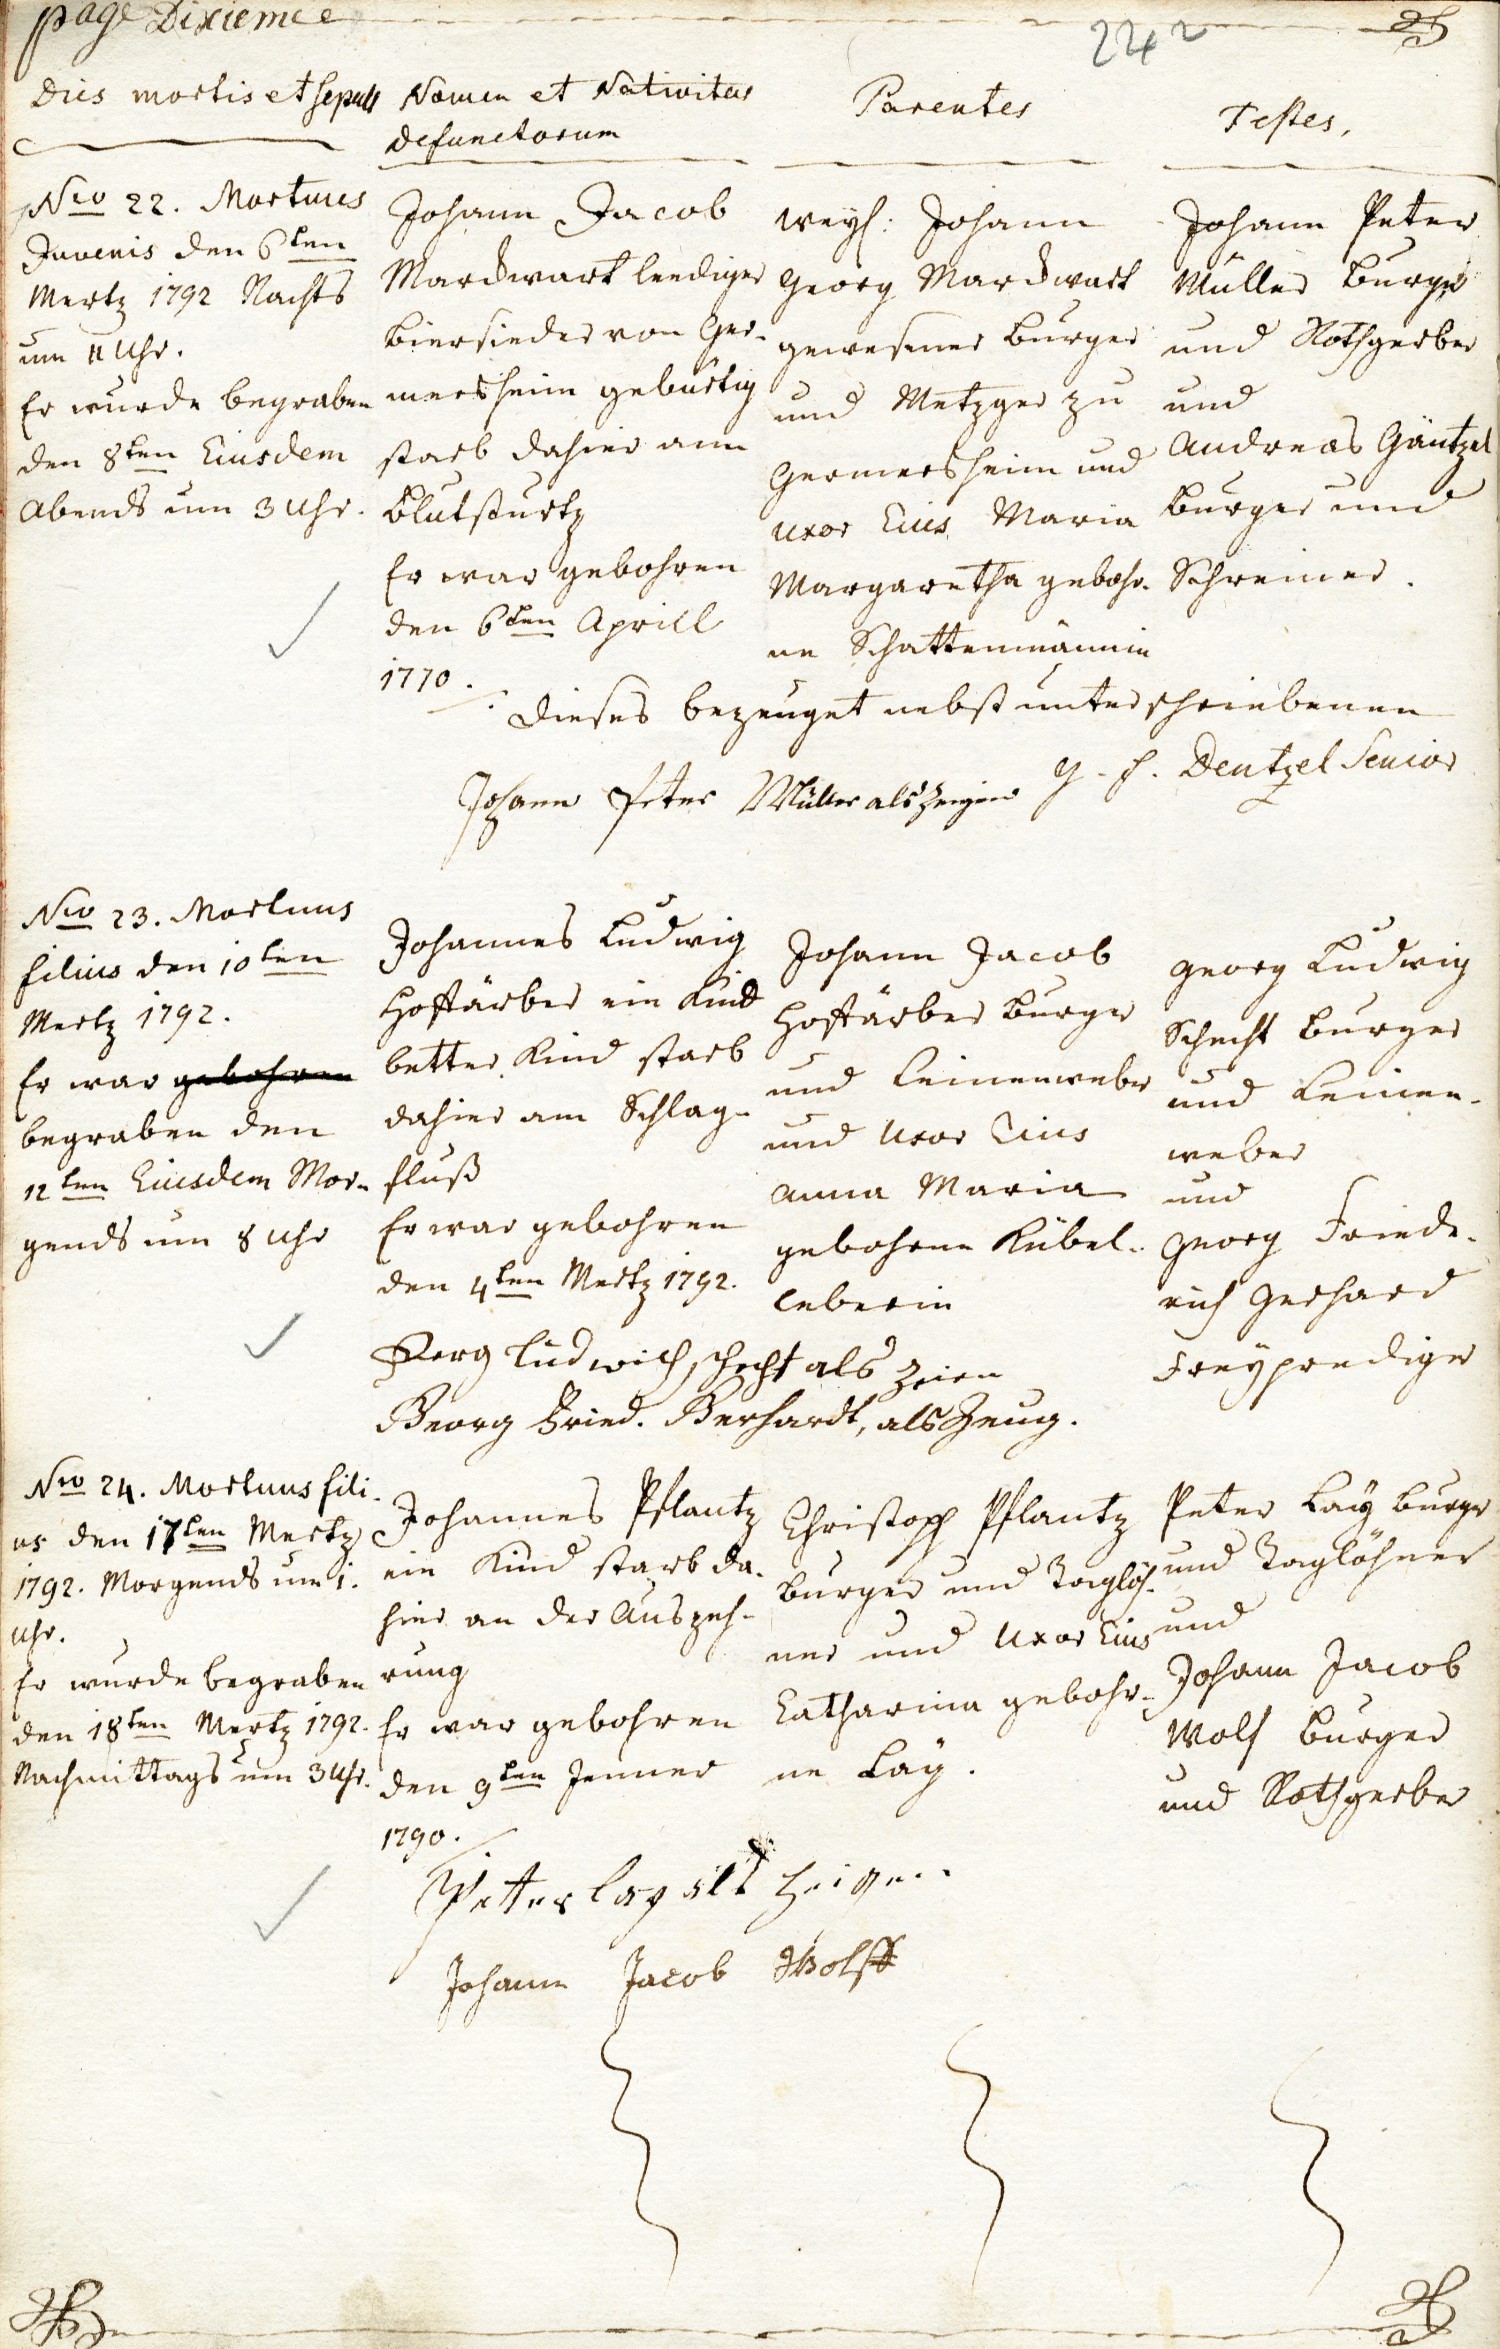 page Dixieme
242
Dies mortis et sepult
Nomen et Nativitas
defunctorum
Parentes
Testes,
Nro 22. Mortuus
Juvenis den 6ten
Mertz 1792 Nachts
um 11 Uhr.
Er wurde begraben
den 8ten Eiusdem
Abends um 3 Uhr.
Johann Jacob
Mardwart leediger
Biersieder von Ger-
mersheim gebürtig
starb dahier am
Blutsturtz
Er war gebohren
den 6ten Aprill
1770.
weyl: Johann
Georg Mardwart
gewesener Burger
und Metzger zu
Germersheim und
uxor Eius Maria
Margaretha gebohr-
ne Schattenmännin
Johann Peter
Müller Burger
und Rothgerber
und
Andreas Gäntzel
Burger und
Schreiner.
Dieses bezeuget nebst unterschriebenen
G. F. Dentzel Senior
Johann Peter Müller als Zeigen
Nro 23. Mortuus
filius den 10ten
Mertz 1792.
Er war gebohren
begraben den
12ten Eiusdem Mor-
gends um 8 Uhr
Johannes Ludwig
Hoffärber ein Kind
better Kind starb
dahier am Schlag-
fluß
Er war gebohren
den 4ten Mertz 1792.
Johann Jacob
Hoffärber Burger
und Leinenweber
und Uxor Eius
Anna Maria
gebohrne Kübel-
leberin
Georg Ludwig
Schecht Burger
und Leinen-
weber
und
Georg Friede-
rich Gerhard
Freyprediger
Gerg Ludwich schecht als Zeien
Georg Fried. Gerhardt, als Zeug.
Nro 24. Mortuus fili-
us den 17ten Mertz
1792. Morgends um 1.
Uhr.
Er wurde begraben
den 18ten Mertz 1792.
Nachmittags um 3 Uhr.
Johannes Pflantz
ein Kind starb da-
hier an der Auszeh-
rung
Er war gebohren
den 9ten Jenner
1790.
Christoph Pflantz
Burger und Taglöh-
ner und Uxor Eius
Catharina gebohr-
ne Laÿ.
Peter Laÿ Burger
und Taglöhner
und
Johann Jacob
Wolf Burger
und Rothgerber
Peter lay als Zeigen
Johann Jacob Wolff